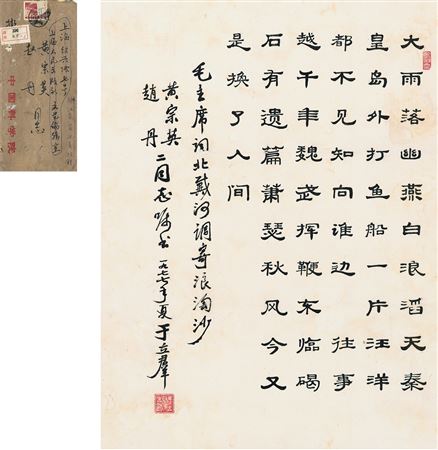 大雨落幽燕白浪滔天秦
皇岛外打鱼船一片汪洋
都不见知向谁边 往事
越千年魏武挥鞭东临碣
石有遗篇萧瑟秋风今又
是换了人间
毛主席词北戴河调寄浪淘沙
黄宗英
趙丹 二同志嘱书 一九七七年夏 于立羣
上海
黄宗英
赵丹 同志